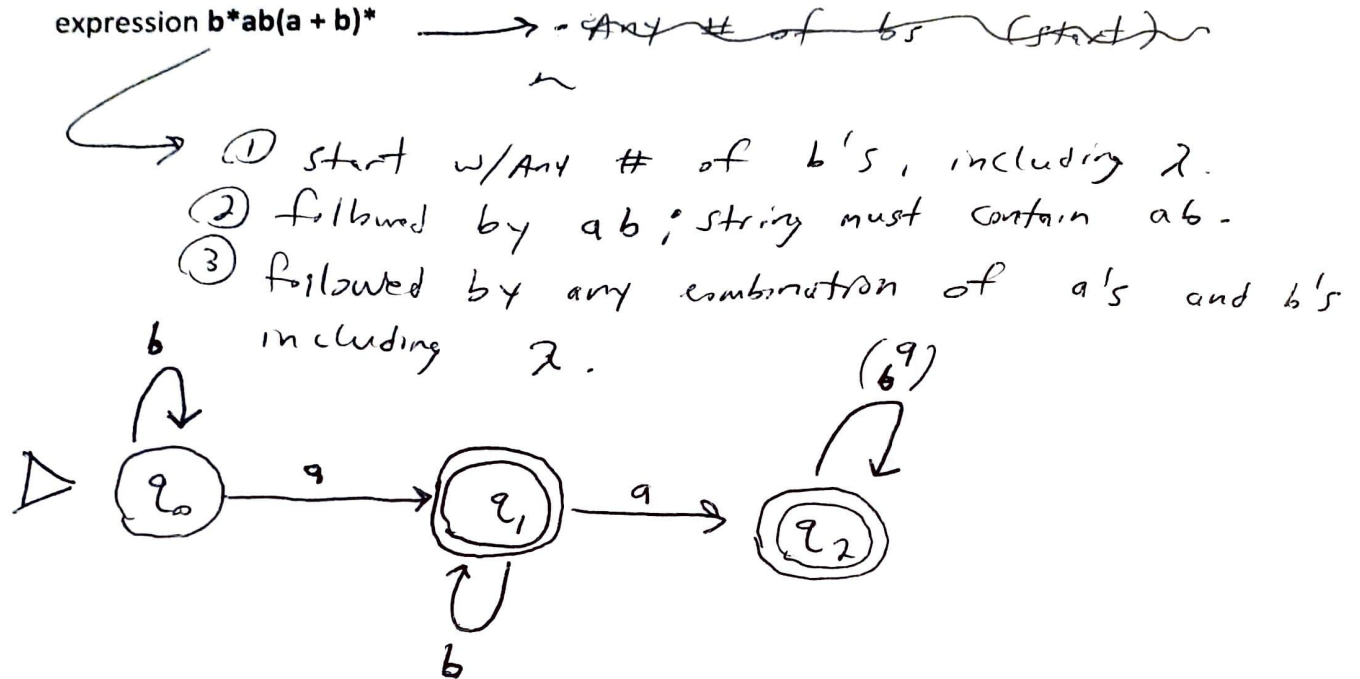 expression b*ab(a + b)* - Any # of bs (start)
① start w/Any # of b's, including λ.
② followed by ab; string must contain ab.
③ followed by any combination of a's and b's
including λ.
b
(a
b)
q₀
a
q₁
a
q₂
b